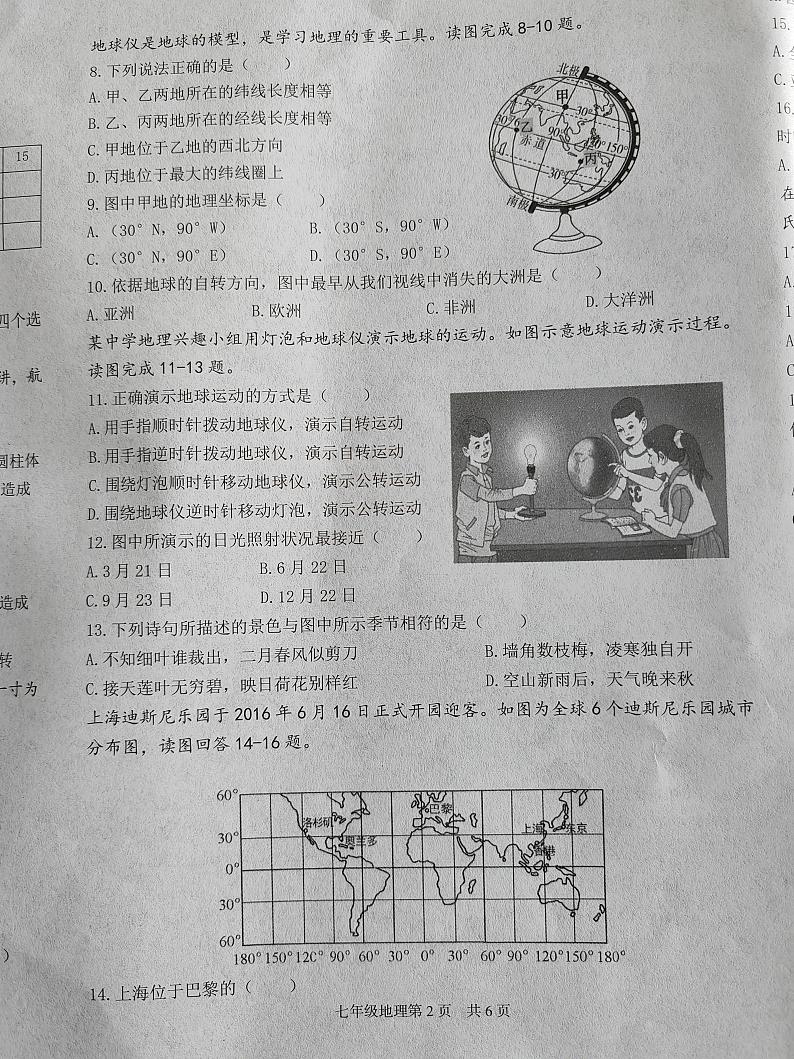 地球仪是地球的模型，是学习地理的重要工具。读图完成8-10题。
8.下列说法正确的是（　　）
A.甲、乙两地所在的纬线长度相等
B.乙、丙两地所在的经线长度相等
C.甲地位于乙地的西北方向
D.丙地位于最大的纬线圈上
北极
甲
30°
乙
90°
赤道
120°150°
丙
30°
南极
9.图中甲地的地理坐标是（　　）
A.（30°N，90°W）　B.（30°S，90°W）
C.（30°N，90°E）　D.（30°S，90°E）
10.依据地球的自转方向，图中最早从我们视线中消失的大洲是（　　）
A.亚洲　B.欧洲　C.非洲　D.大洋洲
某中学地理兴趣小组用灯泡和地球仪演示地球的运动。如图示意地球运动演示过程。
读图完成11-13题。
11.正确演示地球运动的方式是（　　）
A.用手指顺时针拨动地球仪，演示自转运动
B.用手指逆时针拨动地球仪，演示自转运动
C.围绕灯泡顺时针移动地球仪，演示公转运动
D.围绕地球仪逆时针移动灯泡，演示公转运动
12.图中所演示的日光照射状况最接近（　　）
A.3月21日　B.6月22日
C.9月23日　D.12月22日
13.下列诗句所描述的景色与图中所示季节相符的是（　　）
A.不知细叶谁裁出，二月春风似剪刀　B.墙角数枝梅，凌寒独自开
C.接天莲叶无穷碧，映日荷花别样红　D.空山新雨后，天气晚来秋
上海迪斯尼乐园于2016年6月16日正式开园迎客。如图为全球6个迪斯尼乐园城市
分布图，读图回答14-16题。
60°
30°
0°
30°
60°
洛杉矶
奥兰多
巴黎
上海
东京
香港
180°150°120°90°60°30°0°30°60°90°120°150°180°
14.上海位于巴黎的（　　）
七年级地理第2页　共6页
15
四个选
讲，航
圆柱体
造成
造成
转
一寸为
）
15.
A.
C.
16.
时
A.
在
氏
A.